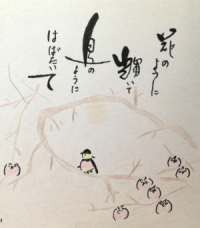 花のように
輝いて
鳥の
ように
はばたいて